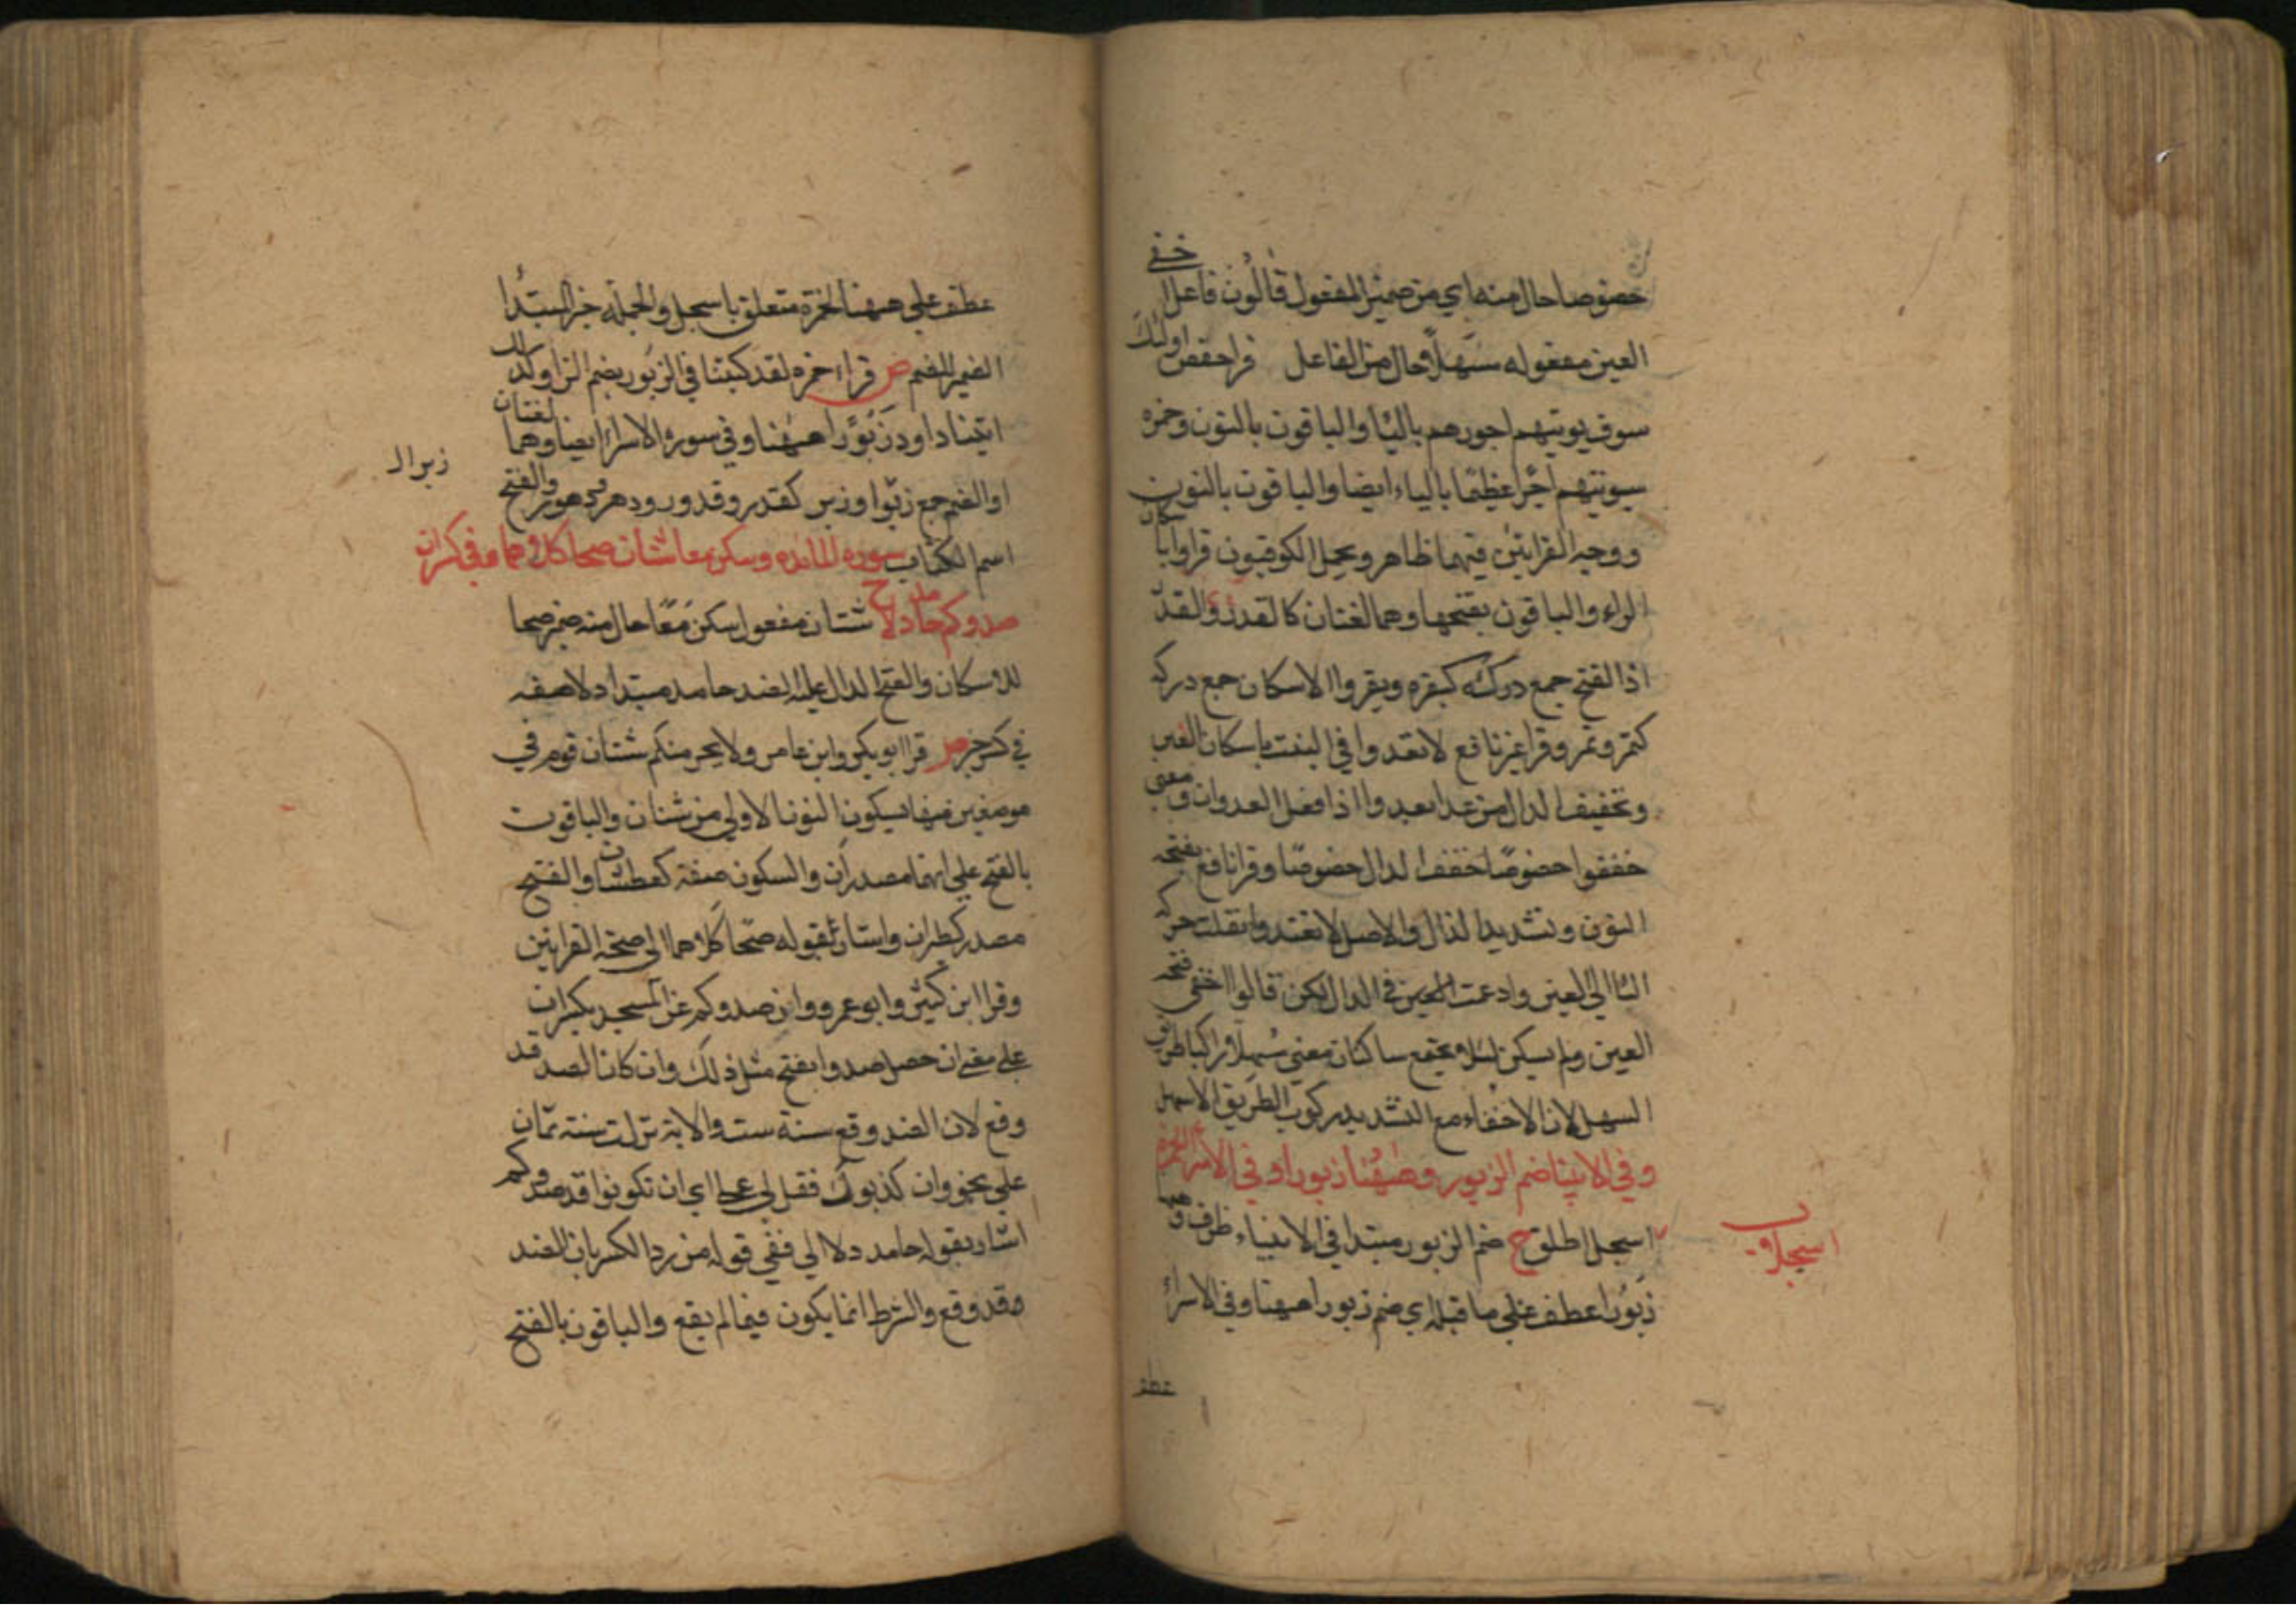 خصوصا حال منه اي من ضمير المفعول قالون فاعل اخفى
العين مفعوله مسهلا حال من الفاعل قرا حفص اولئك
سوف يوتيهم اجورهم بالياء والباقون بالنون وحمزه
سيوتيهم اجرا عظيما بالياء ايضا والباقون بالنون
ووجه القرايتين فيهما ظاهر الكوفيون قراوا باسكان
الراء والباقون بفتحها وهما لغتان كالقدر والقدر
اذا لفتح جمع دركه كبقره وبقر والاسكان جمع دركه
كتمر وتمر وقرا غير نافع لا تعدوا في السبت باسكان العين
وتخفيف الدال من عدا يعدوا اذا فعل العدوان ومعنى
خففوا خصوصا خففوا الدال خصوصا وقرا نافع بفتحه
النون وتشديد الدال والاصل لا تعتدوا نقلت حركه
التا الي العين وادغمت في الدال لكن قالوا اخفى فتحه
العين ولم يسكن لئلا يجتمع ساكنان معنى مسهلا راكبا طريق
السهل لان الاخفاء مع التشديد ركوب الطريق الاسهل
وفي الانبيا ضم الزبور وههنا زبورا وفي الاسرا لحمزة
اسجلا
اسجل اطلق ح ضم الزبور مبتدا في الانبياء ظرف وههنا
زبورا عطف علي ما قبله اي ضم زبورا ههنا وفي الاسراء
عطف
عطف علي ههنا لحمزة متعلق باسجل والجمله خبر المبتدا
الضمير للضم ص قراء حمزه لقد كتبنا في الزبور بضم الزاء وكذلك
اتينا داود زبورا ههنا وفي سورة الاسراء ايضا وهما لغتان
زبر ال
او الضم جمع زبر كقدر وقدور ودهر ودهور والفتح
اسم الكتاب سورة المائده وسكن معا شنان صحا كلاهما وفي كسر ان
صدوكم حامد دلا ح شنان مفعول سكن معا حال منه ضمير صحا
للاسكان والفتح الدال عليه الضد حامد مبتدا دلا صفه
في كسر خبر ص قرا ابو بكر وابن عامر ولا يجرمنكم شنان قوم في
موضعين منها بسكون النون الاولي من شنان والباقون
بالفتح علي انهما مصدران والسكون صفة كعطشان والفتح
مصدر كطيران واشار بقوله صحا كلاهما الي صحة القرايتين
وقرا ابن كثير وابو عمرو وان صدوكم عن المسجد بكسر ان
علي معنى ان حصل صد وا بفتح مثل ذلك وان كان الصد قد
وقع لان الصد وقع سنة ست والاية نزلت سنة ثمان
علي نحو وان كذبوك فقل لي عملي اي ان تكونوا قد صدوكم
اشار بقوله حامد دلا الي قوله من رد الكسر بان الصد
قد وقع والشرط انما يكون فيما لم يقع والباقون بالفتح